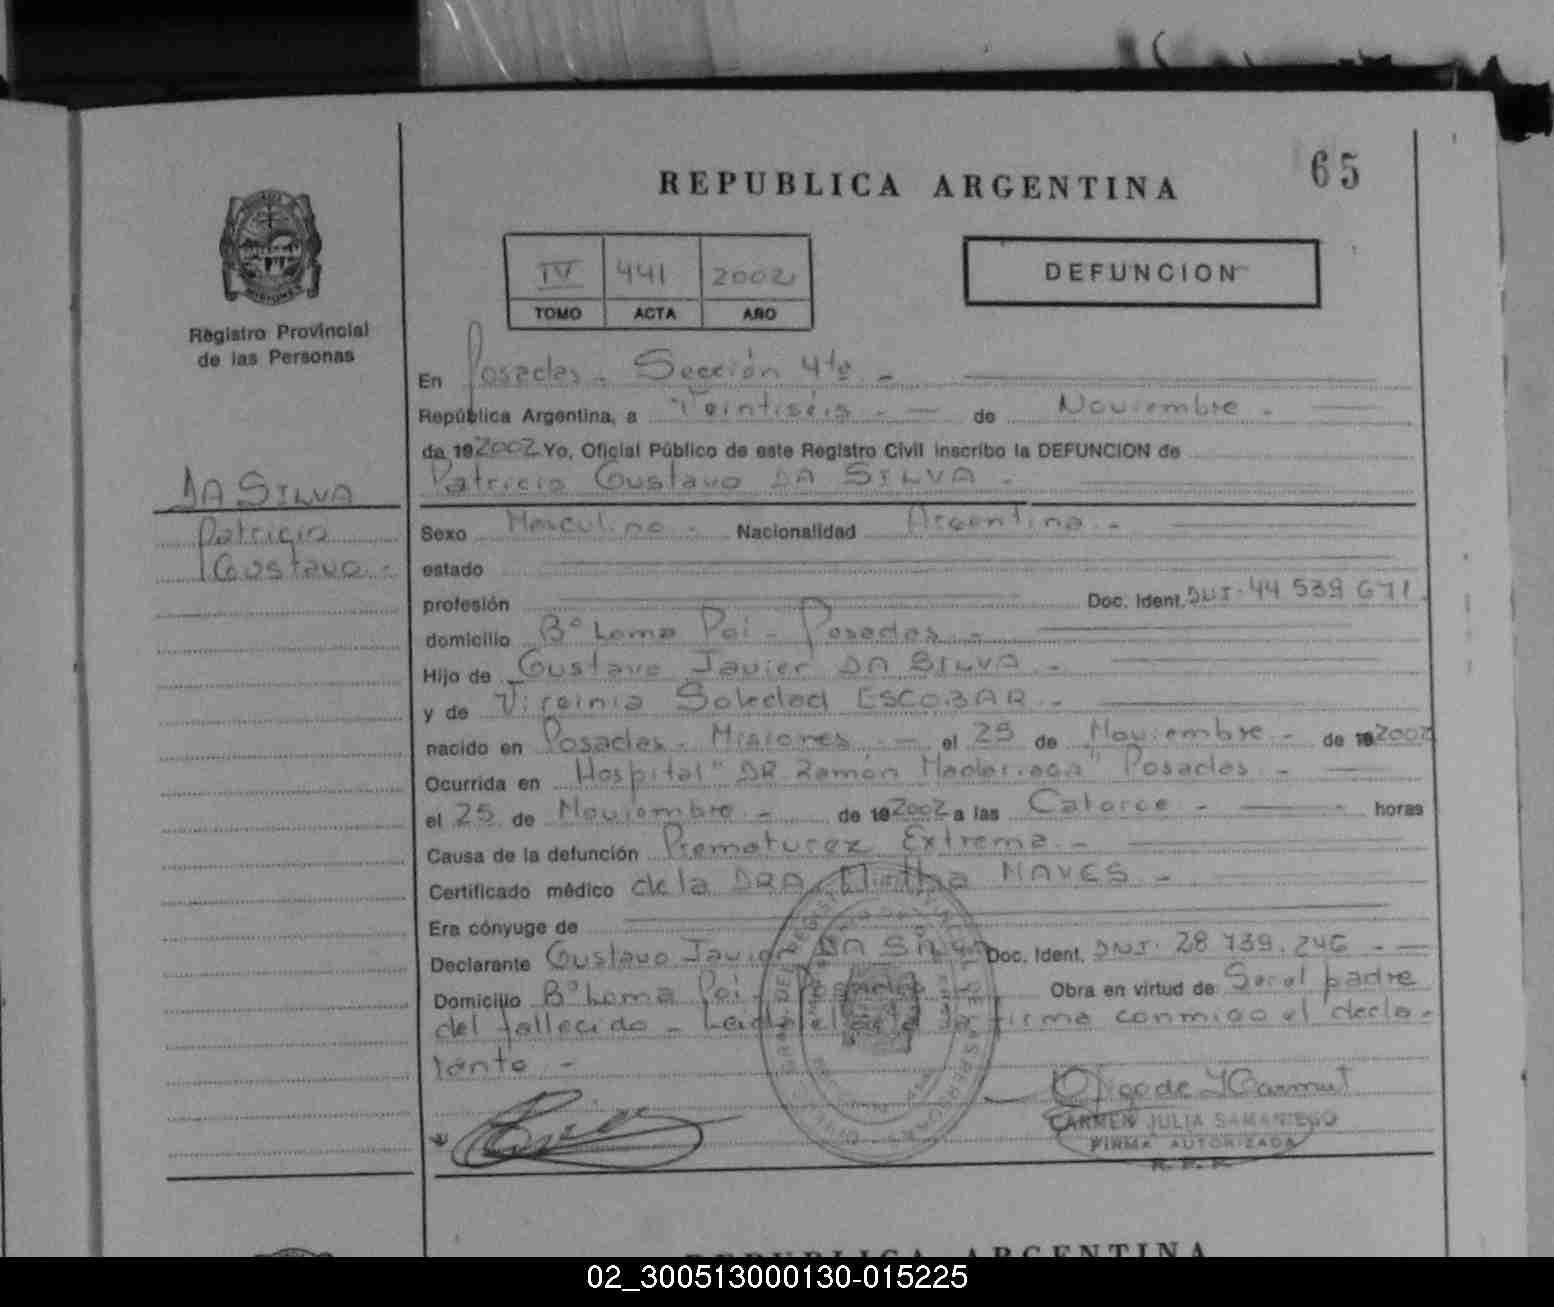 65
REPUBLICA ARGENTINA
IV 441 2002
TOMO ACTA AÑO
DEFUNCION
MISIONES
Registro Provincial
de las Personas
En Posadas - Sección 4ta -
República Argentina, a Veintiséis - de Noviembre -
de 192002 Yo, Oficial Público de este Registro Civil inscribo la DEFUNCION de
Patricio Gustavo DA SILVA -
DA SILVA
Patricio
Gustavo -
Sexo Masculino - Nacionalidad Argentina -
estado
profesión Doc. Ident. DNI. 44 539 671
domicilio Bº Loma Poi - Posadas -
Hijo de Gustavo Javier DA SILVA -
y de Virginia Soledad ESCOBAR -
nacido en Posadas - Misiones - el 25 de Noviembre - de 192002
Ocurrida en Hospital "DR. Ramón Madariaga" Posadas -
el 25 de Noviembre - de 192002 a las Catorce - horas
Causa de la defunción Prematurez Extrema -
Certificado médico de la DRA. Mirtha NAVES -
Era cónyuge de
Declarante Gustavo Javier DA SILVA Doc. Ident. DNI. 28.739.246 -
Domicilio Bº Loma Poi - Posadas Obra en virtud de Ser el padre
del fallecido - Leída el acta la firma conmigo el decla-
rante -
CARMEN JULIA SAMANIEGO
FIRMA AUTORIZADA
R. P. P.
REPUBLICA ARGENTINA
02_300513000130-015225